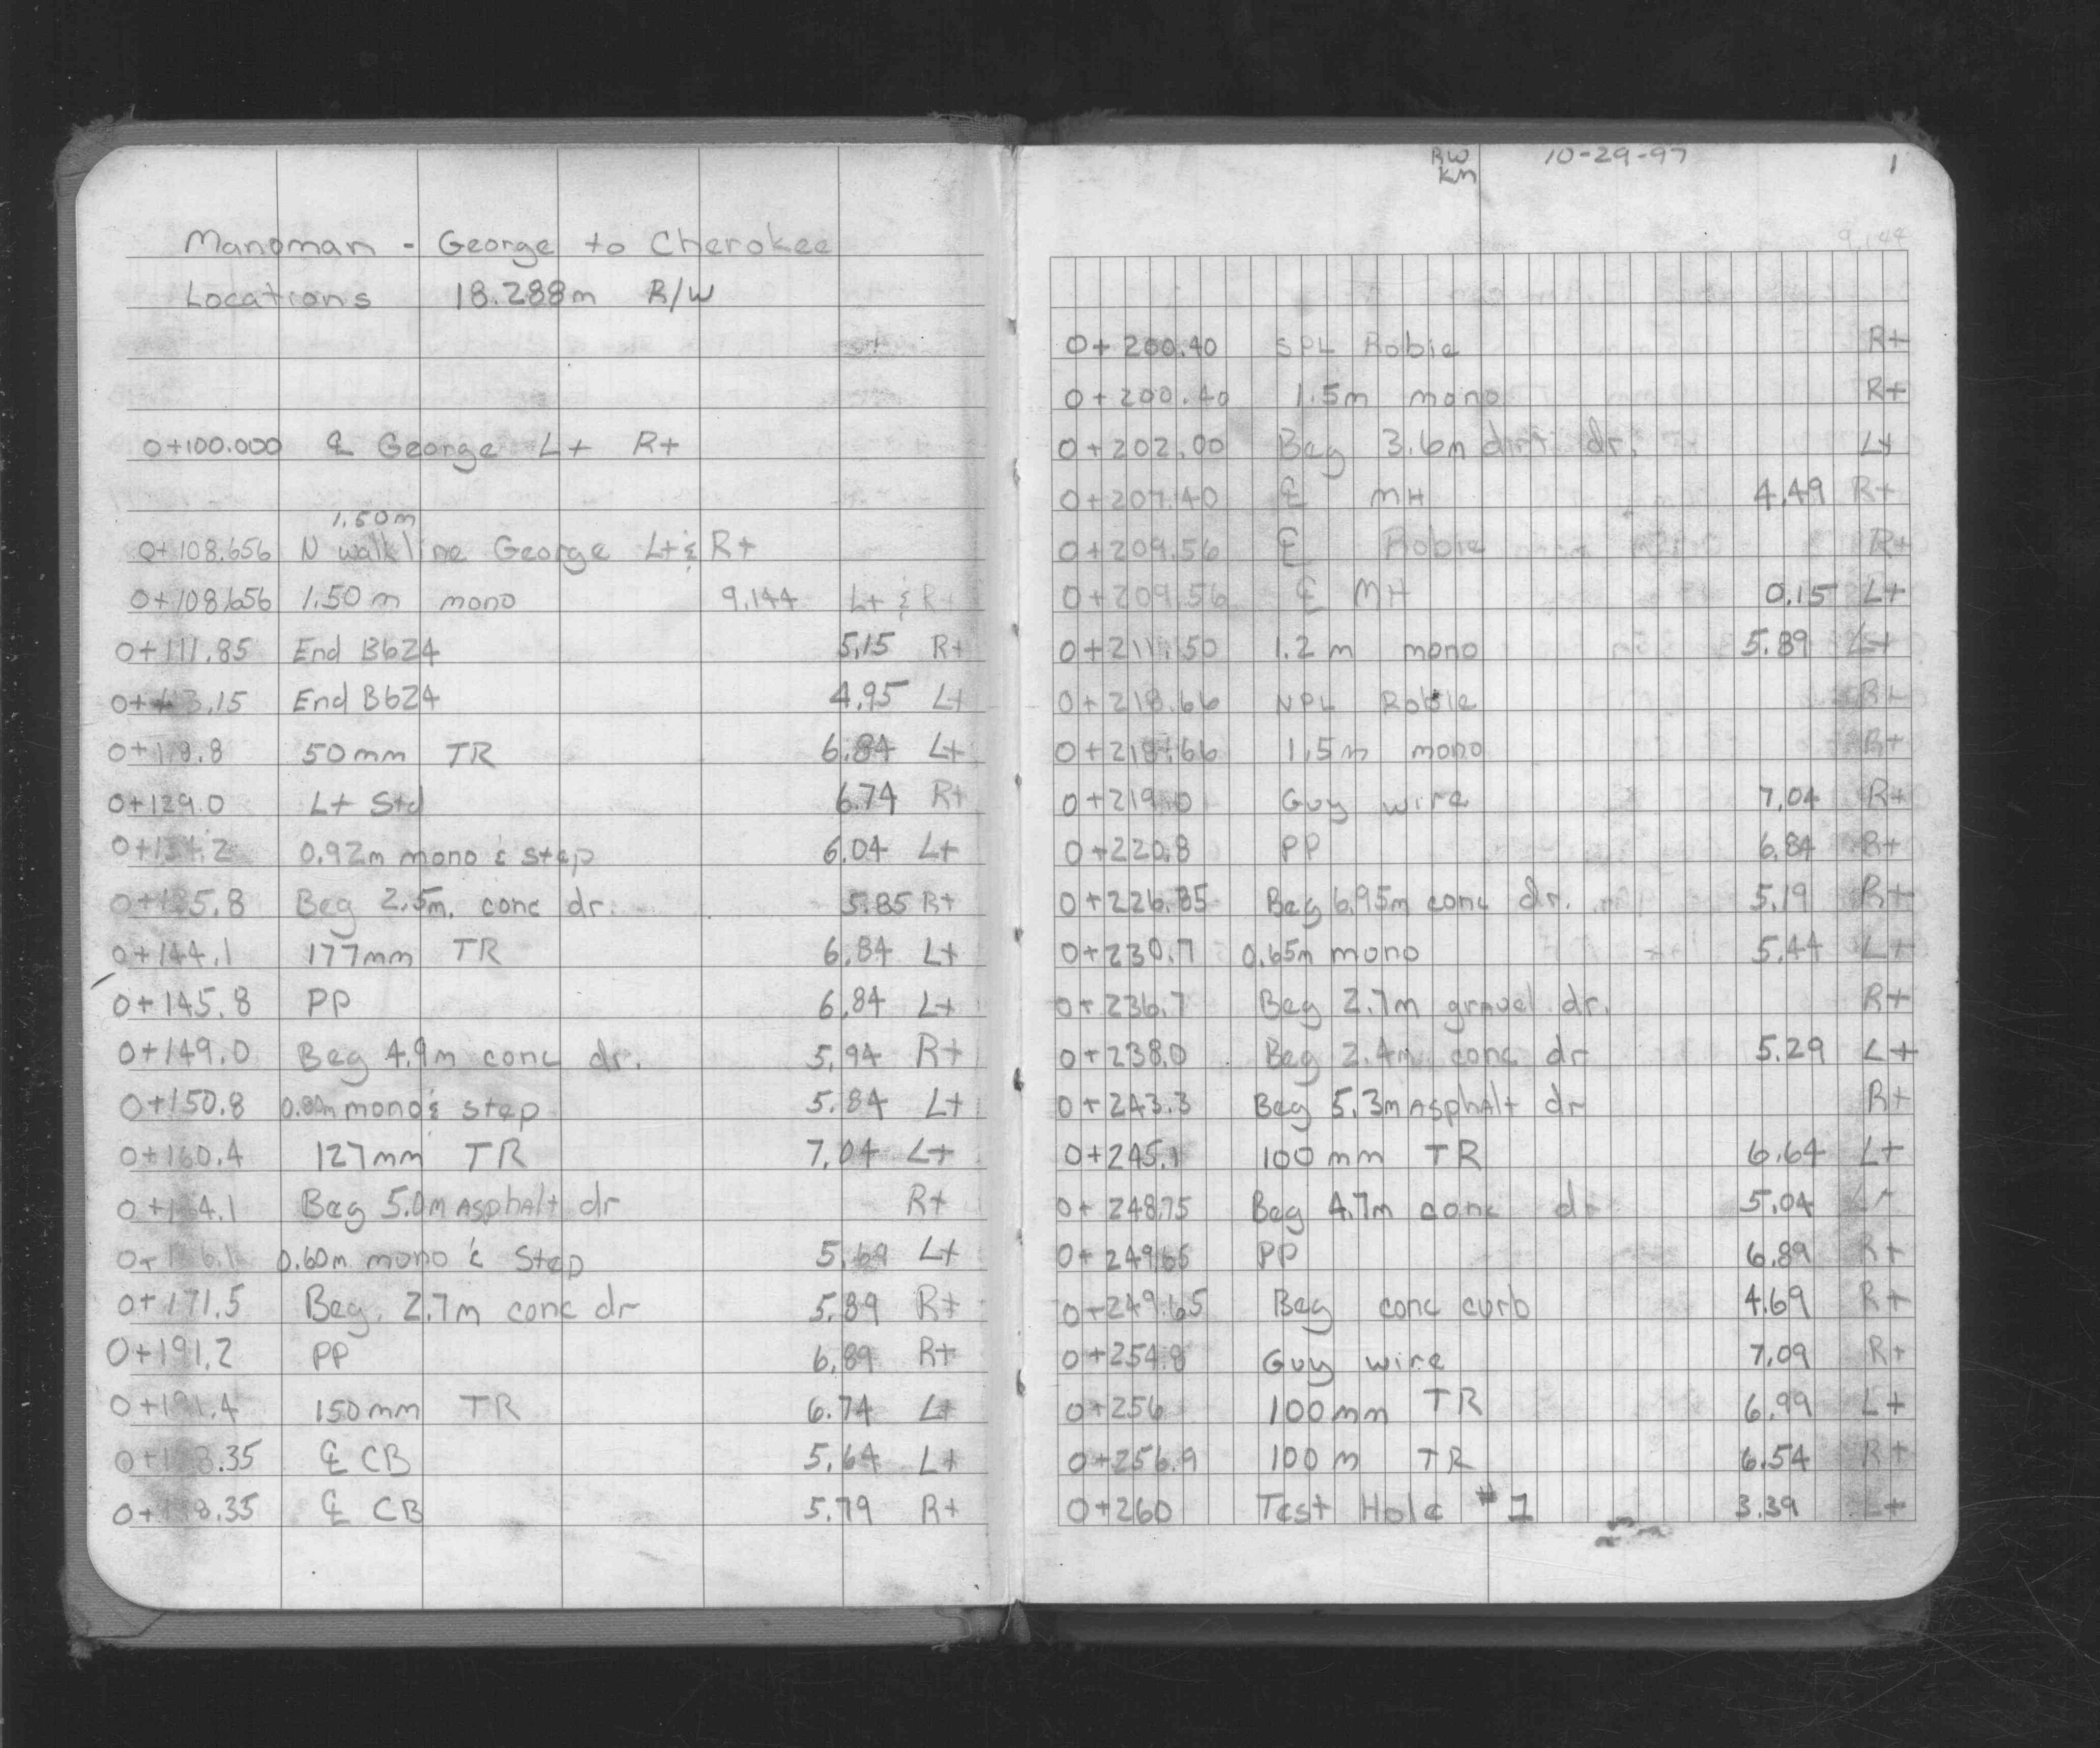 Manoman - George to Cherokee
Locations 18.288m R/W
0+100.000 ℄ George Lt Rt
1.50m
0+108.656 N walkline George Lt & Rt
0+108.656 1.50m mono 9.144 Lt & Rt
0+111.85 End B624 5.15 Rt
End B624 4.95 Lt
50mm TR 6.84 Lt
0+129.0 Lt Std 6.74 Rt
0.92m mono & step 6.04 Lt
Beg 2.5m. conc dr. 5.85 Rt
0+144.1 177mm TR 6.84 Lt
0+145.8 PP 6.84 Lt
0+149.0 Beg 4.9m conc dr. 5.94 Rt
0+150.8 mono & step 5.84 Lt
0+160.4 127mm TR 7.04 Lt
Beg 5.0m Asphalt dr Rt
0.60m mono & Step 5.69 Lt
0+171.5 Beg. 2.7m conc dr 5.89 Rt
0+191.2 PP 6.89 Rt
0+191.4 150mm TR 6.74 Lt
℄ CB 5.64 Lt
℄ CB 5.79 Rt
RW 10-29-97 1
KM
9.144
0+200.40 SPL Robie Rt
0+200.40 1.5m mono Rt
0+202.00 Beg 3.6m dirt dr. Lt
0+207.40 ℄ MH 4.49 Rt
0+209.56 ℄ Robie Rt
0+209.56 ℄ MH 0.15 Lt
0+211.50 1.2m mono 5.89 Lt
0+218.66 NPL Robie Rt
0+218.66 1.5m mono Rt
0+219.0 Guy wire 7.04 Rt
0+220.8 PP 6.84 Rt
0+226.85 Beg 6.95m conc dr. 5.19 Rt
0+230.7 0.65m mono 5.44 Lt
0+236.7 Beg 2.7m gravel dr. Rt
0+238.0 Beg 2.4m conc dr 5.29 Lt
0+243.3 Beg 5.3m Asphalt dr Rt
0+245.1 100mm TR 6.64 Lt
0+248.75 Beg 4.7m conc dr 5.04 Lt
0+249.65 PP 6.89 Rt
0+249.65 Beg conc curb 4.69 Rt
0+254.8 Guy wire 7.09 Rt
0+256 100mm TR 6.99 Lt
0+256.9 100m TR 6.54 Rt
0+260 Test Hole #1 3.39 Lt